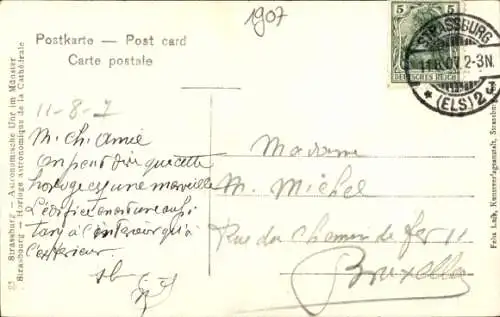 1907
Postkarte — Post card
Carte postale
5 5
DEUTSCHES REICH
STRASSBURG
11.8.07. 2-3N.
* (ELS) 2 J
Strassburg — Astronomische Uhr im Münster
Strassburg — Horloge astronomique de la Cathédrale
11-8-7
M. ch. Amie
On peut dire que cette
horloge est une merveille
L'édifice en
à l'intérieur qu'à
l'extérieur
Madame
M. Michel
Rue du Chemin de fer 11
Bruxelles
Felix Luib, Kunstverlagsanstalt, Strassburg